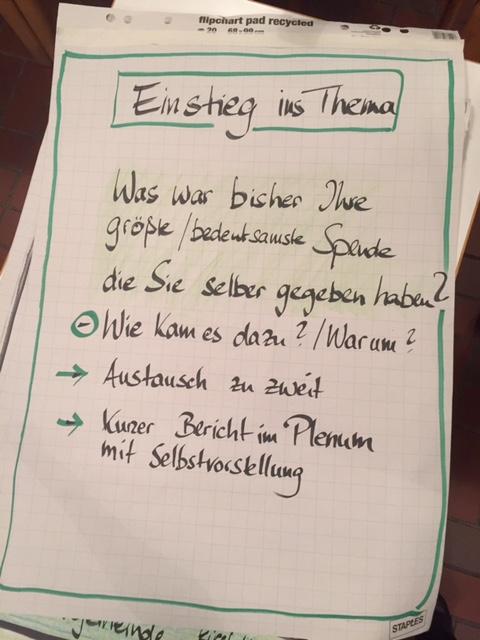 flipchart pad recycled
20 68x99cm
Einstieg ins Thema
Was war bisher Ihre
größte/bedeutsamste Spende
die Sie selber gegeben haben?
Wie kam es dazu?/Warum?
→ Austausch zu zweit
→ Kurzer Bericht im Plenum
mit Selbstvorstellung
STAPLES